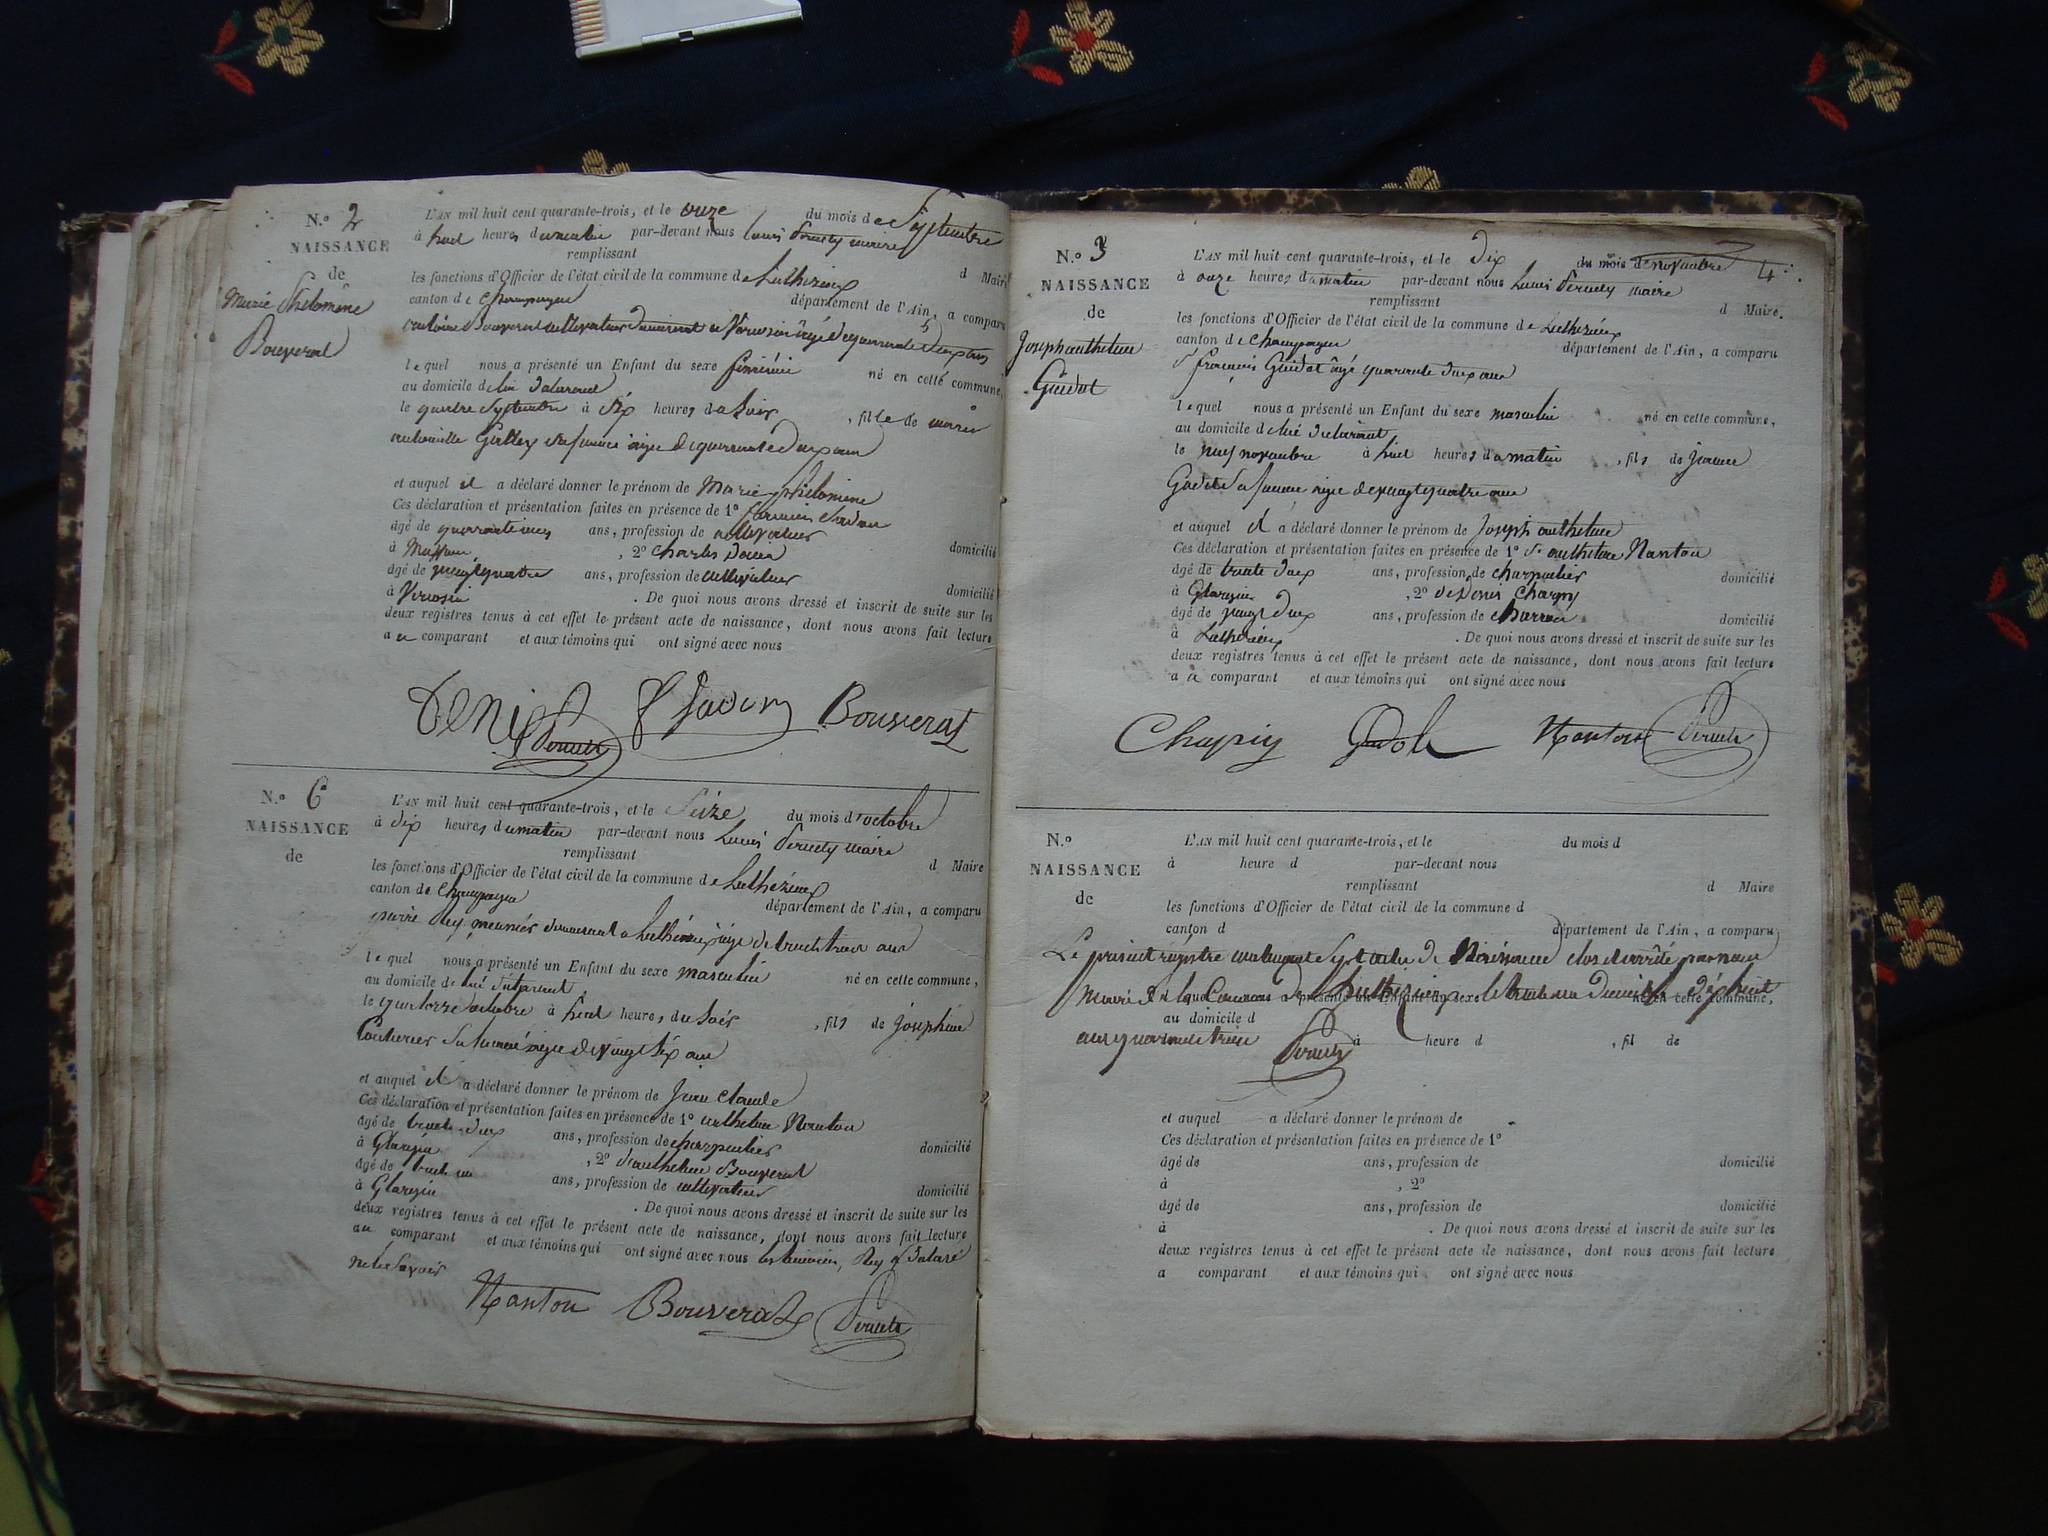 N.º 2
NAISSANCE
de
Marie Philomène
Bouverat
L'AN mil huit cent quarante-trois, et le onze du mois de Septembre
à huit heures du matin par-devant nous Louis maire
remplissant d Maire
les fonctions d'Officier de l'état civil de la commune de Luthézieu
canton de Champagne département de l'Ain, a comparu
antoine Bouverat cultivateur demeurant a Vovosin âgé de quarante deux ans
lequel nous a présenté un Enfant du sexe féminin né en cette commune,
au domicile de
le quatre Septembre à Six heures du Soir, fille de
Sa femme âgée de quarante deux ans
et auquel il a déclaré donner le prénom de Marie philomène
Ces déclaration et présentation faites en présence de 1º
âgé de ans, profession de cultivateur domicilié
à, 2º Charles
âgé de vingt quatre ans, profession de cultivateur domicilié
à. De quoi nous avons dressé et inscrit de suite sur les
deux registres tenus à cet effet le présent acte de naissance, dont nous avons fait lecture
au comparant et aux témoins qui ont signé avec nous
Bouverat
N.º 6
NAISSANCE
de
L'AN mil huit cent quarante-trois, et le Seize du mois d'octobre
à dix heures du matin par-devant nous Louis maire
remplissant d Maire
les fonctions d'Officier de l'état civil de la commune de Luthézieu
canton de Champagne département de l'Ain, a comparu
pierre Rey meunier demeurant a Luthézieu âgé de trente trois ans
lequel nous a présenté un Enfant du sexe masculin né en cette commune,
au domicile de
le quatorze octobre à huit heures du Soir, fils de Joséphine
Sa femme âgée de vingt Six ans
et auquel il a déclaré donner le prénom de Jean Claude
Ces déclaration et présentation faites en présence de 1º anthelme Nanton
âgé de trente deux ans, profession de charpentier domicilié
à, 2º anthelme Bouverat
âgé de trente un ans, profession de cultivateur domicilié
à. De quoi nous avons dressé et inscrit de suite sur les
deux registres tenus à cet effet le présent acte de naissance, dont nous avons fait lecture
au comparant et aux témoins qui ont signé avec nous les témoins, Rey a Déclaré
ne le Savoir
Nanton Bouverat
4
N.º 3
NAISSANCE
de
Joseph anthelme
Guidot
L'AN mil huit cent quarante-trois, et le dix du mois de novembre
à onze heures du matin par-devant nous Louis maire
remplissant d Maire.
les fonctions d'Officier de l'état civil de la commune de Luthézieu
canton de Champagne département de l'Ain, a comparu
françois Guidot âgé quarante deux ans
lequel nous a présenté un Enfant du sexe masculin né en cette commune,
au domicile de
le neuf novembre à huit heures du matin, fils de Jeanne
Sa femme âgée de vingt quatre ans
et auquel il a déclaré donner le prénom de Joseph anthelme
Ces déclaration et présentation faites en présence de 1º anthelme Nanton
âgé de trente deux ans, profession de charpentier domicilié
à, 2º
âgé de vingt deux ans, profession de charron domicilié
à Luthézieu. De quoi nous avons dressé et inscrit de suite sur les
deux registres tenus à cet effet le présent acte de naissance, dont nous avons fait lecture
au comparant et aux témoins qui ont signé avec nous
Nanton
N.º
NAISSANCE
de
L'AN mil huit cent quarante-trois, et le du mois d
à heure d par-devant nous
remplissant d Maire
les fonctions d'Officier de l'état civil de la commune d
canton d département de l'Ain, a comparu
Le présent régistre contenant Sept actes de Naissance clos et arrêté par nous
Maire de la Commune de Luthézieu le trente un Décembre dix huit
au domicile d
cent quarante trois à heure d, fil de
et auquel a déclaré donner le prénom de
Ces déclaration et présentation faites en présence de 1º
âgé de ans, profession de domicilié
à, 2º
âgé de ans, profession de domicilié
à. De quoi nous avons dressé et inscrit de suite sur les
deux registres tenus à cet effet le présent acte de naissance, dont nous avons fait lecture
a comparant et aux témoins qui ont signé avec nous